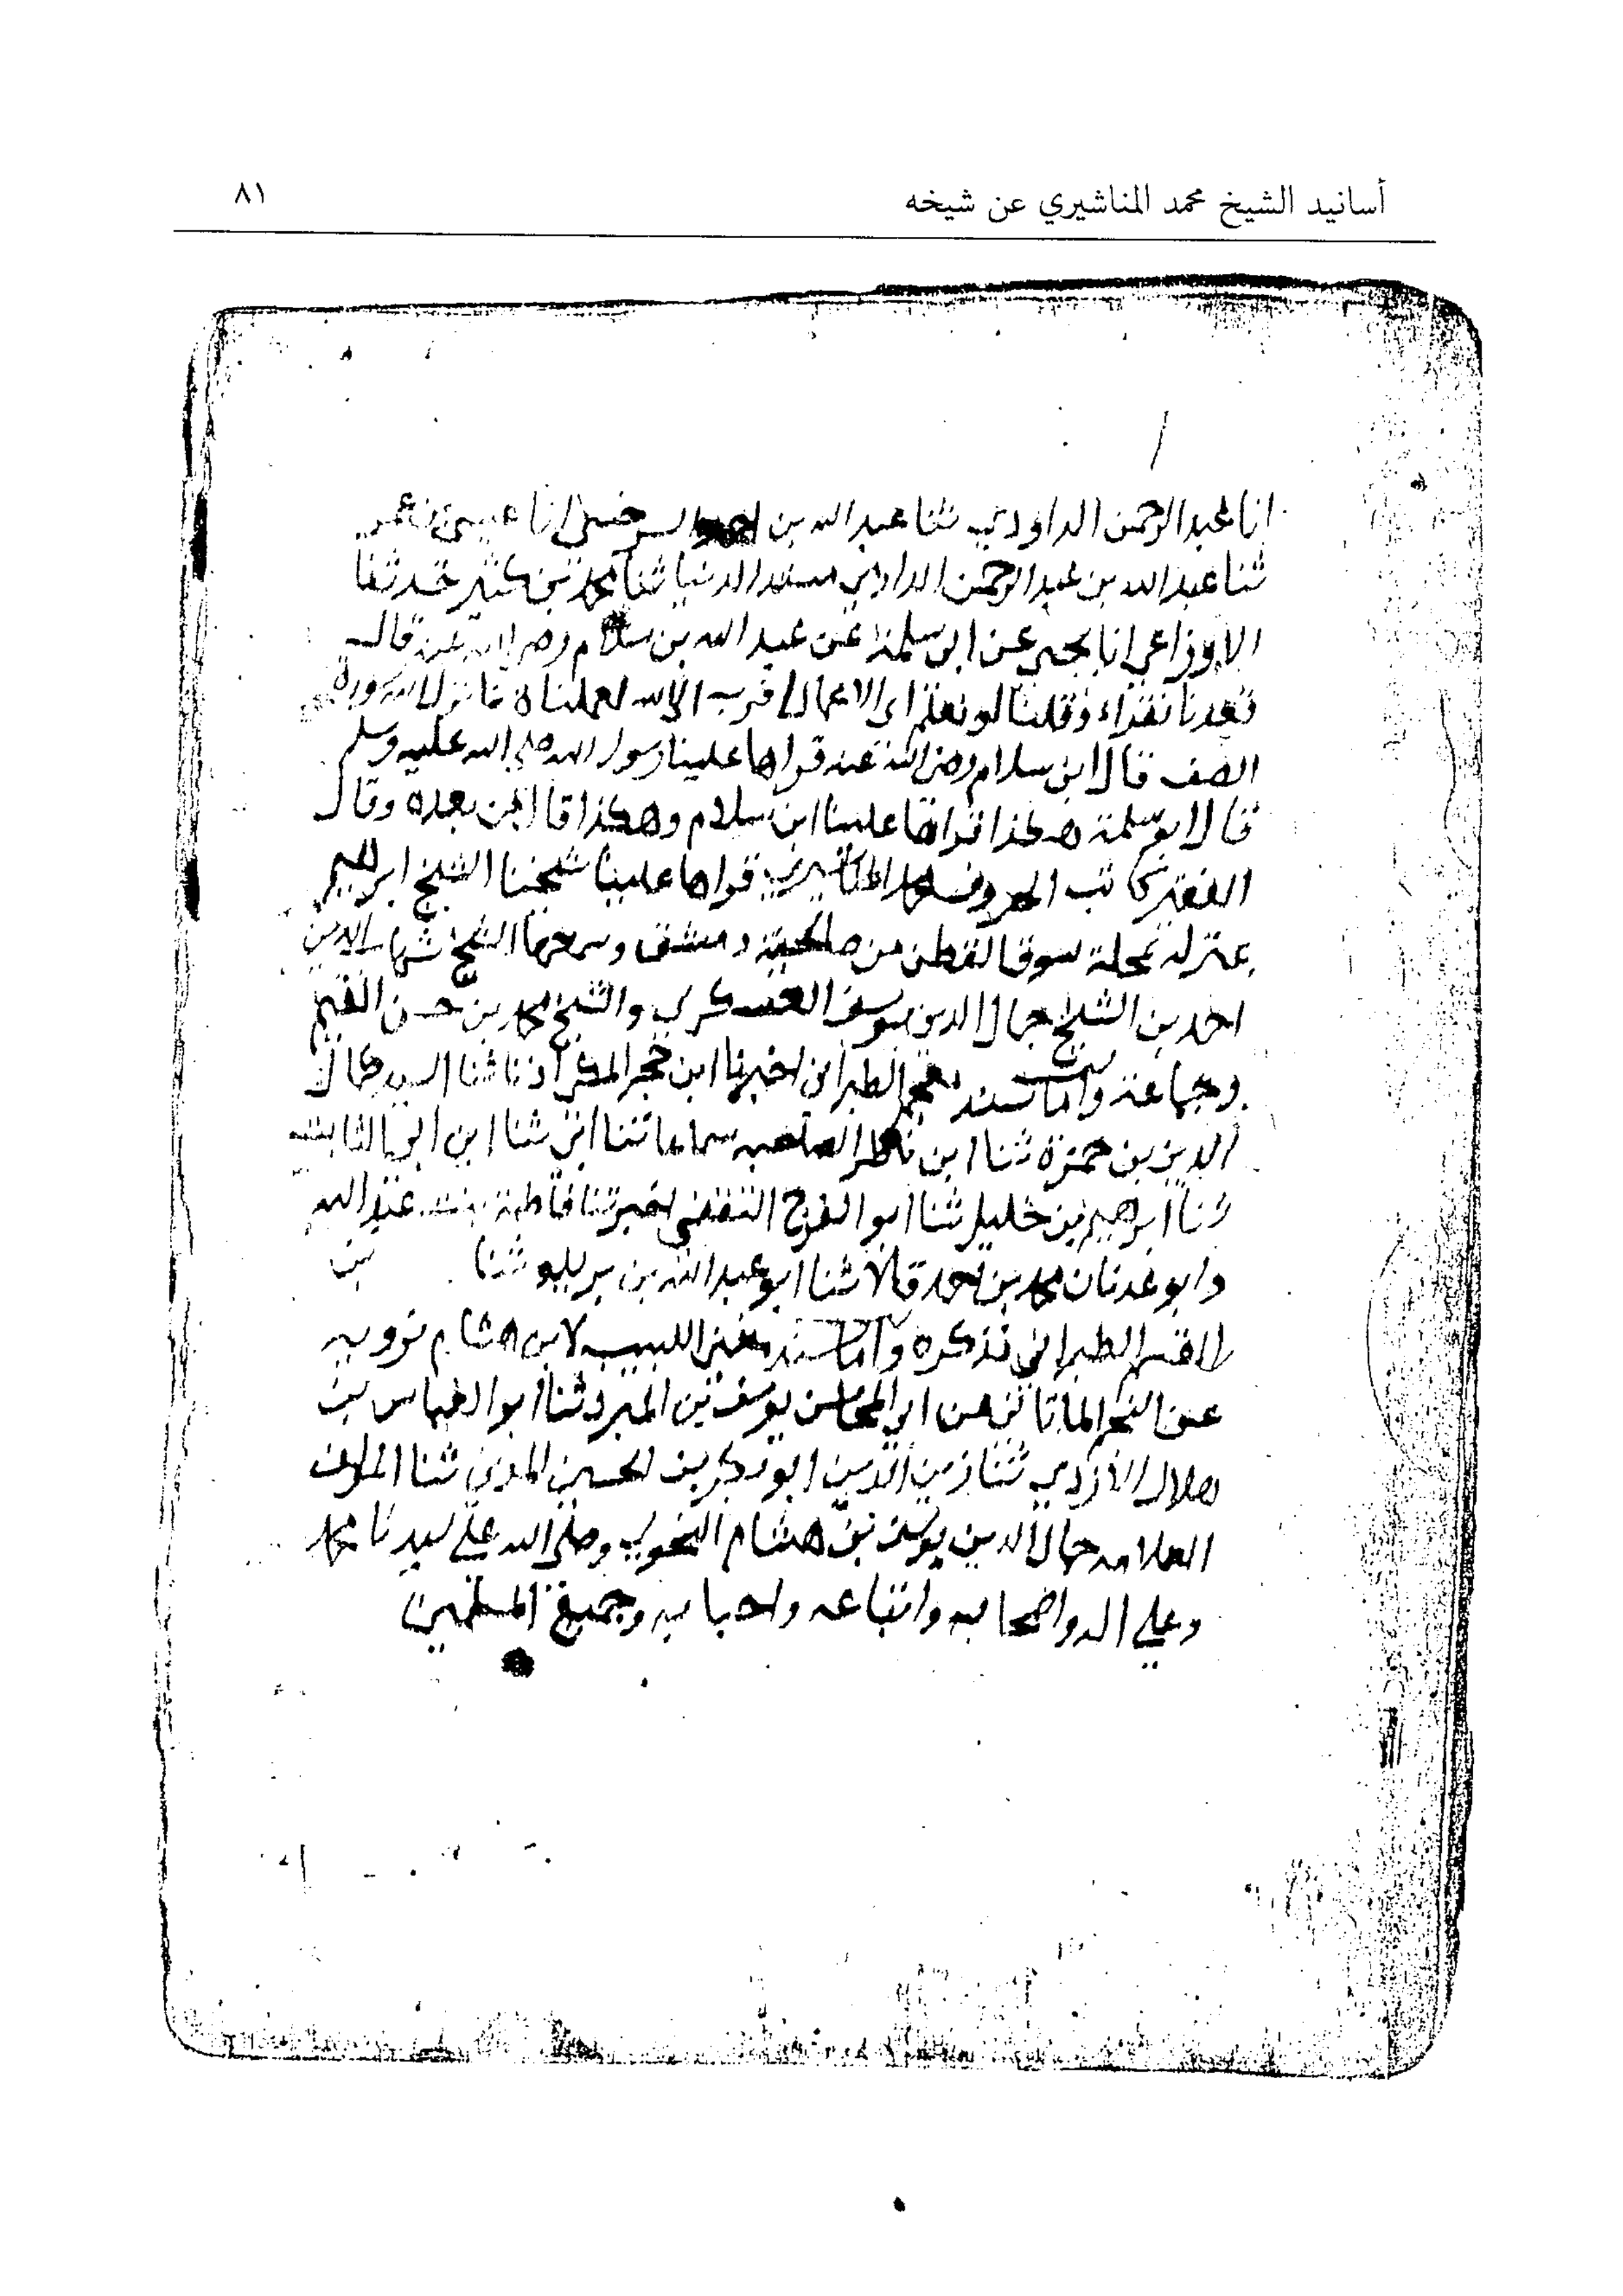 أسانيد الشيخ محمد المناشيري عن شيخه
٨١
انا عبد الرحمن الداودي ثنا عبد الله بن احمد السرخسي انا عيسى بن عمر
ثنا عبد الله بن عبد الرحمن الدارمي مسند الدنيا ثنا محمد بن كثير حدثنا
الاوزاعي انا يحيى عن ابي سلمة عن عبد الله بن سلام رضي الله عنه قال
قعدنا نفراء فقلنا لو نعلم اي الاعمال اقرب الى الله لعملناه فانزل الله سورة
الصف قال ابن سلام رضي الله عنه قراها علينا رسول الله صلى الله عليه وسلم
قال ابو سلمة هكذا قراها علينا ابن سلام وهكذا قال من بعده وقال
الفقير كاتب الحروف محمد المناشيري قراها علينا شيخنا الشيخ ابراهيم
بمنزله بمحلة سوق القطن من صالحية دمشق وسمعها الشيخ شهاب الدين
احمد بن الشيخ جمال الدين يوسف العسكري والشيخ محمد بن حسن القيم
وجماعة واما سند معجم الطبراني اخبرنا ابن حجر المكي اذنا ثنا السيد كمال
الدين بن حمزة ثنا ابن ناظر الصاحبه سماعا ثنا ابي ثنا ابن ابي التائب
ثنا ابراهيم بن خليل ثنا ابو الفرج الثقفي اخبرتنا فاطمة بنت عبد الله
وابو عدنان محمد بن احمد قالا ثنا ابو عبد الله بن ثنا
الطبراني فذكره واما سند مغني اللبيب لابن هشام نرويه
عن النجم الماتاني عن ابي المحاسن يوسف بن المبرد ثنا ابو العباس بن
هلال الازدي ثنا زين الدين ابو بكر بن الحسين المدني ثنا المولف
العلامه جمال الدين يوسف بن هشام النحوي وصلى الله على سيدنا محمد
وعلى اله واصحابه واتباعه واحبابه وجميع المسلمين